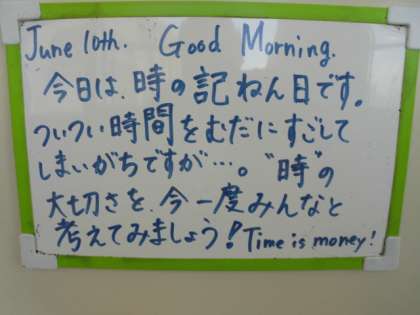 June 10th. Good Morning.
今日は、時の記ねん日です。
ついつい時間をむだにすごして
しまいがちですが…。"時"の
大切さを、今一度みんなと
考えてみましょう！Time is money!